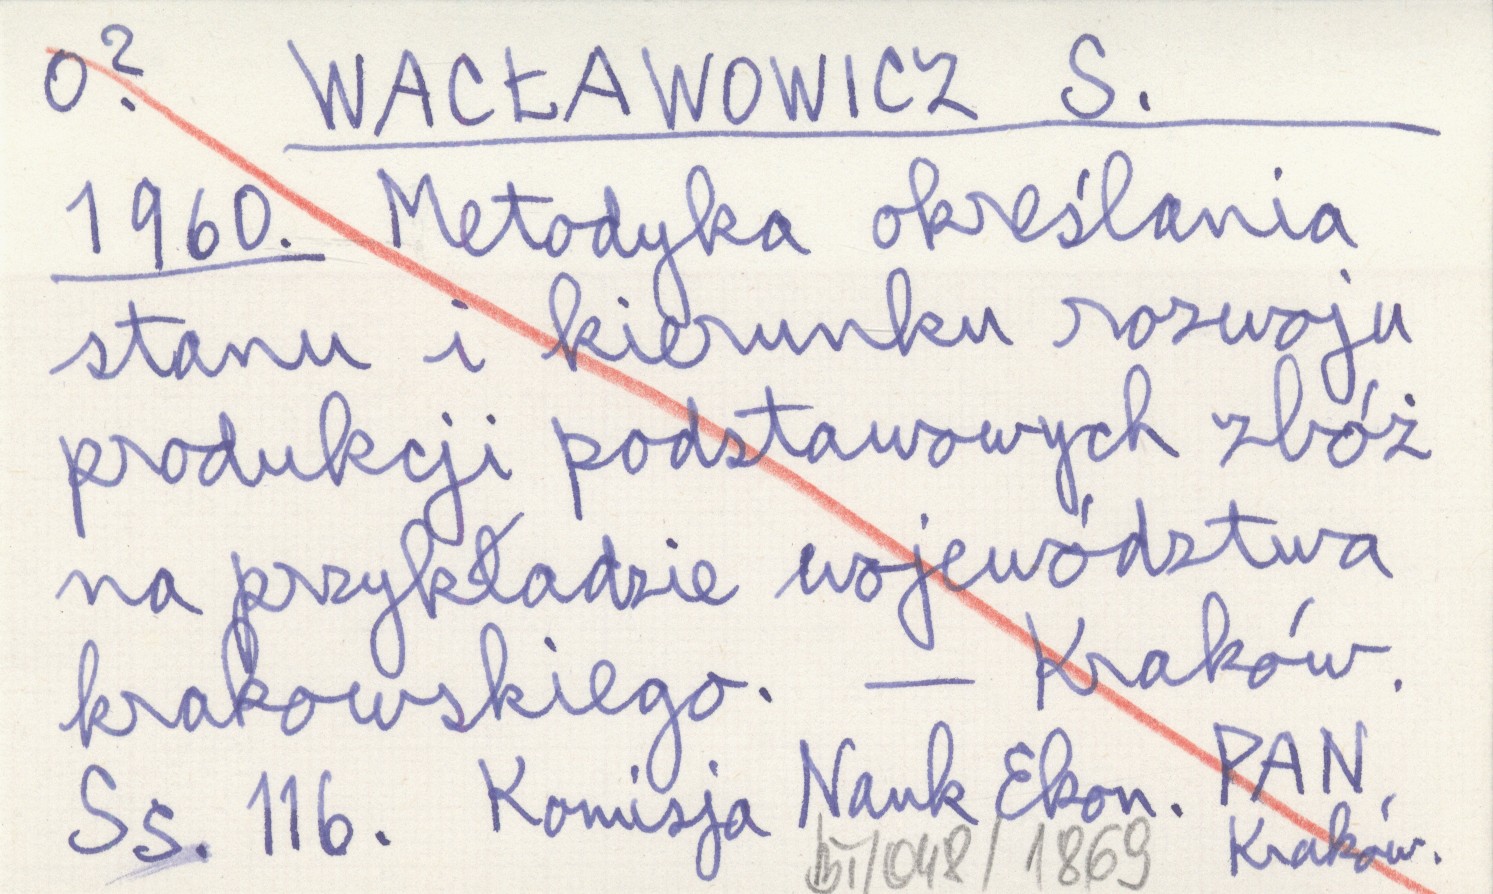 O? WACŁAWOWICZ S.
1960. Metodyka określania
stanu i kierunku rozwoju
produkcji podstawowych zbóż
na przykładzie województwa
krakowskiego. — Kraków.
Ss. 116. Komisja Nauk Ekon. PAN
Kraków.
/048/1869